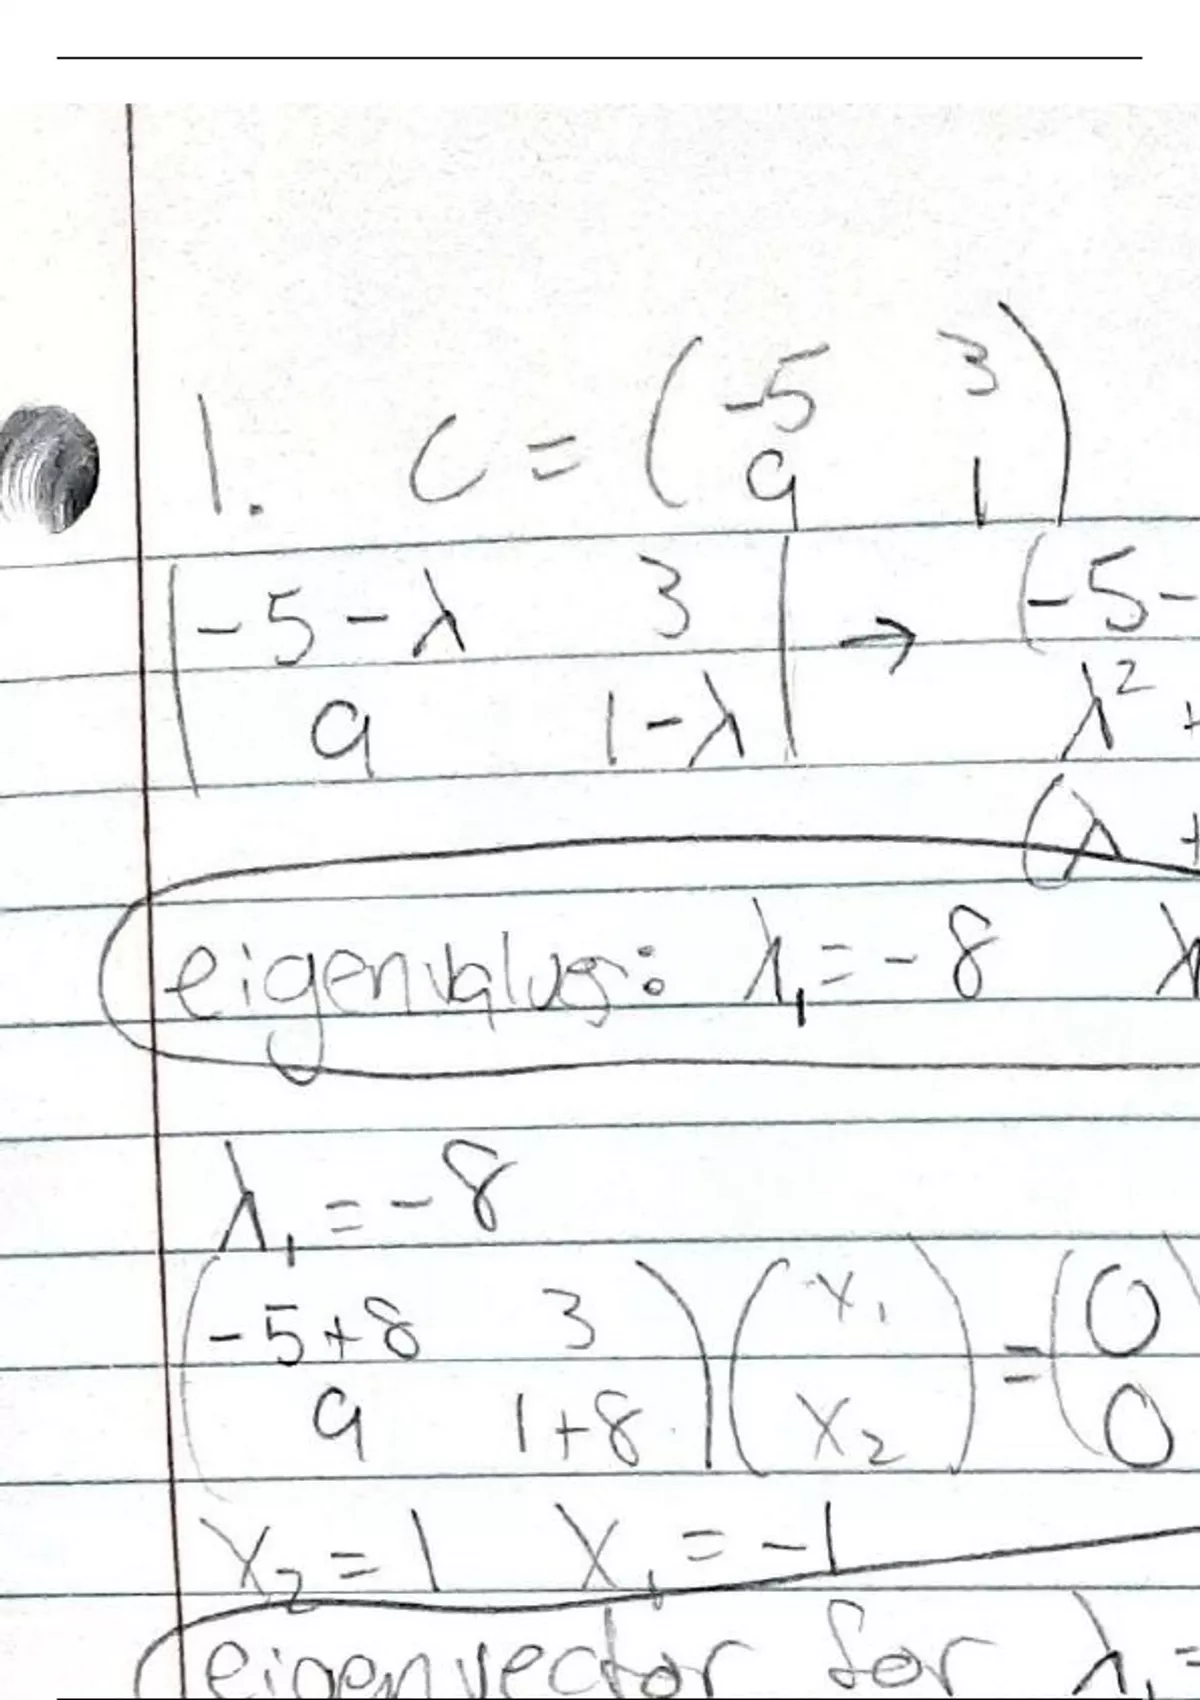 1. C = (-5 3
9 1)
|-5-λ 3
9 1-λ| → (-5-
λ² +
(λ +
eigenvalues: λ₁ = -8 λ
λ₁ = -8
(-5+8 3
9 1+8) (x₁
x₂) = (0
0)
x₂ = 1 x₁ = -1
eigenvector for λ₁ =